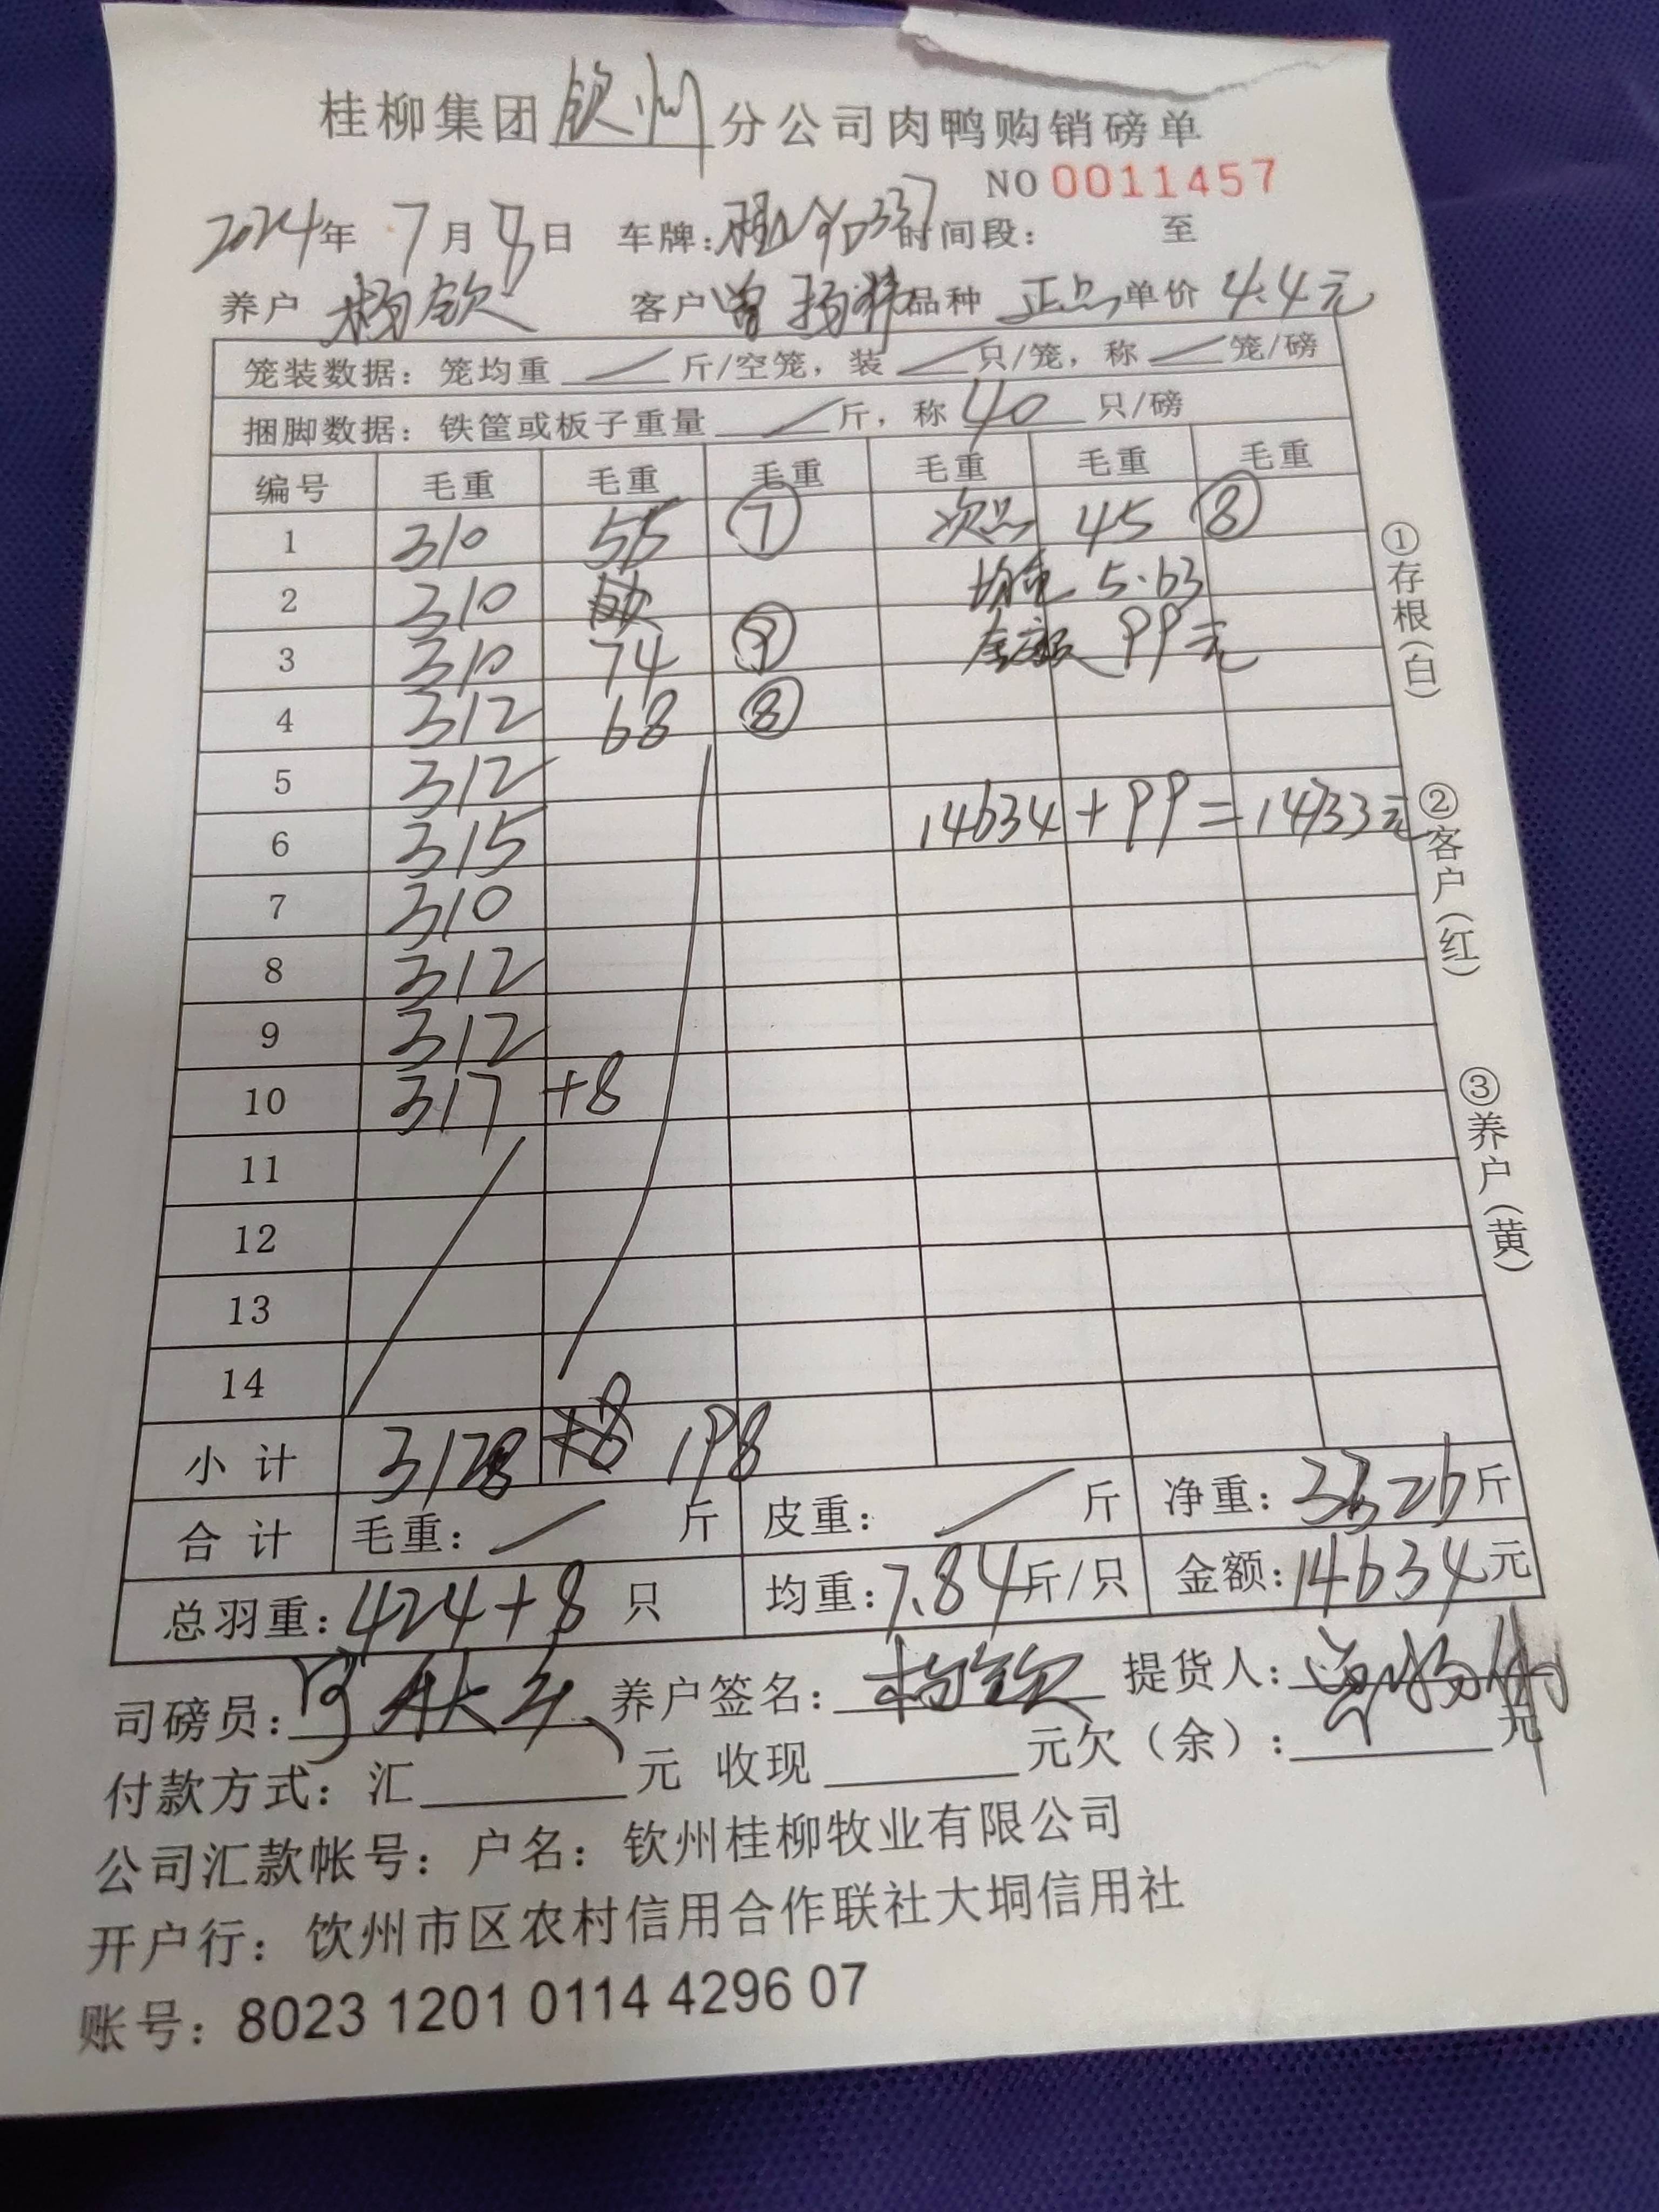 桂柳集团钦州分公司肉鸭购销磅单
NO 0011457
2024年 7月 日 车牌: 时间段: 至
养户 杨钦 客户 曾扬 品种 正品 单价 4.4元
笼装数据：笼均重 / 斤/空笼，装 / 只/笼，称 / 笼/磅
捆脚数据：铁筐或板子重量 / 斤，称 40 只/磅
编号 毛重 毛重 毛重 毛重 毛重 毛重
1 310 55 ⑦ 次品 45 ⑧
2 310 均重 5.63
3 310 74 ⑨ 金额 99元
4 312 68 ⑧
5 312
6 315 14634+99=14733元
7 310
8 312
9 312
10 317 +8
11
12
13
14
小计 3128 +8 198
合计 毛重: / 斤 皮重: / 斤 净重: 3326斤
总羽重: 424+8 只 均重: 7.84斤/只 金额: 14634元
司磅员: 养户签名: 杨钦 提货人: 曾扬
付款方式: 汇 元 收现 元欠（余）: 元
公司汇款帐号: 户名: 钦州桂柳牧业有限公司
开户行: 饮州市区农村信用合作联社大垌信用社
账号: 8023 1201 0114 4296 07
①存根(白)
②客户(红)
③养户(黄)